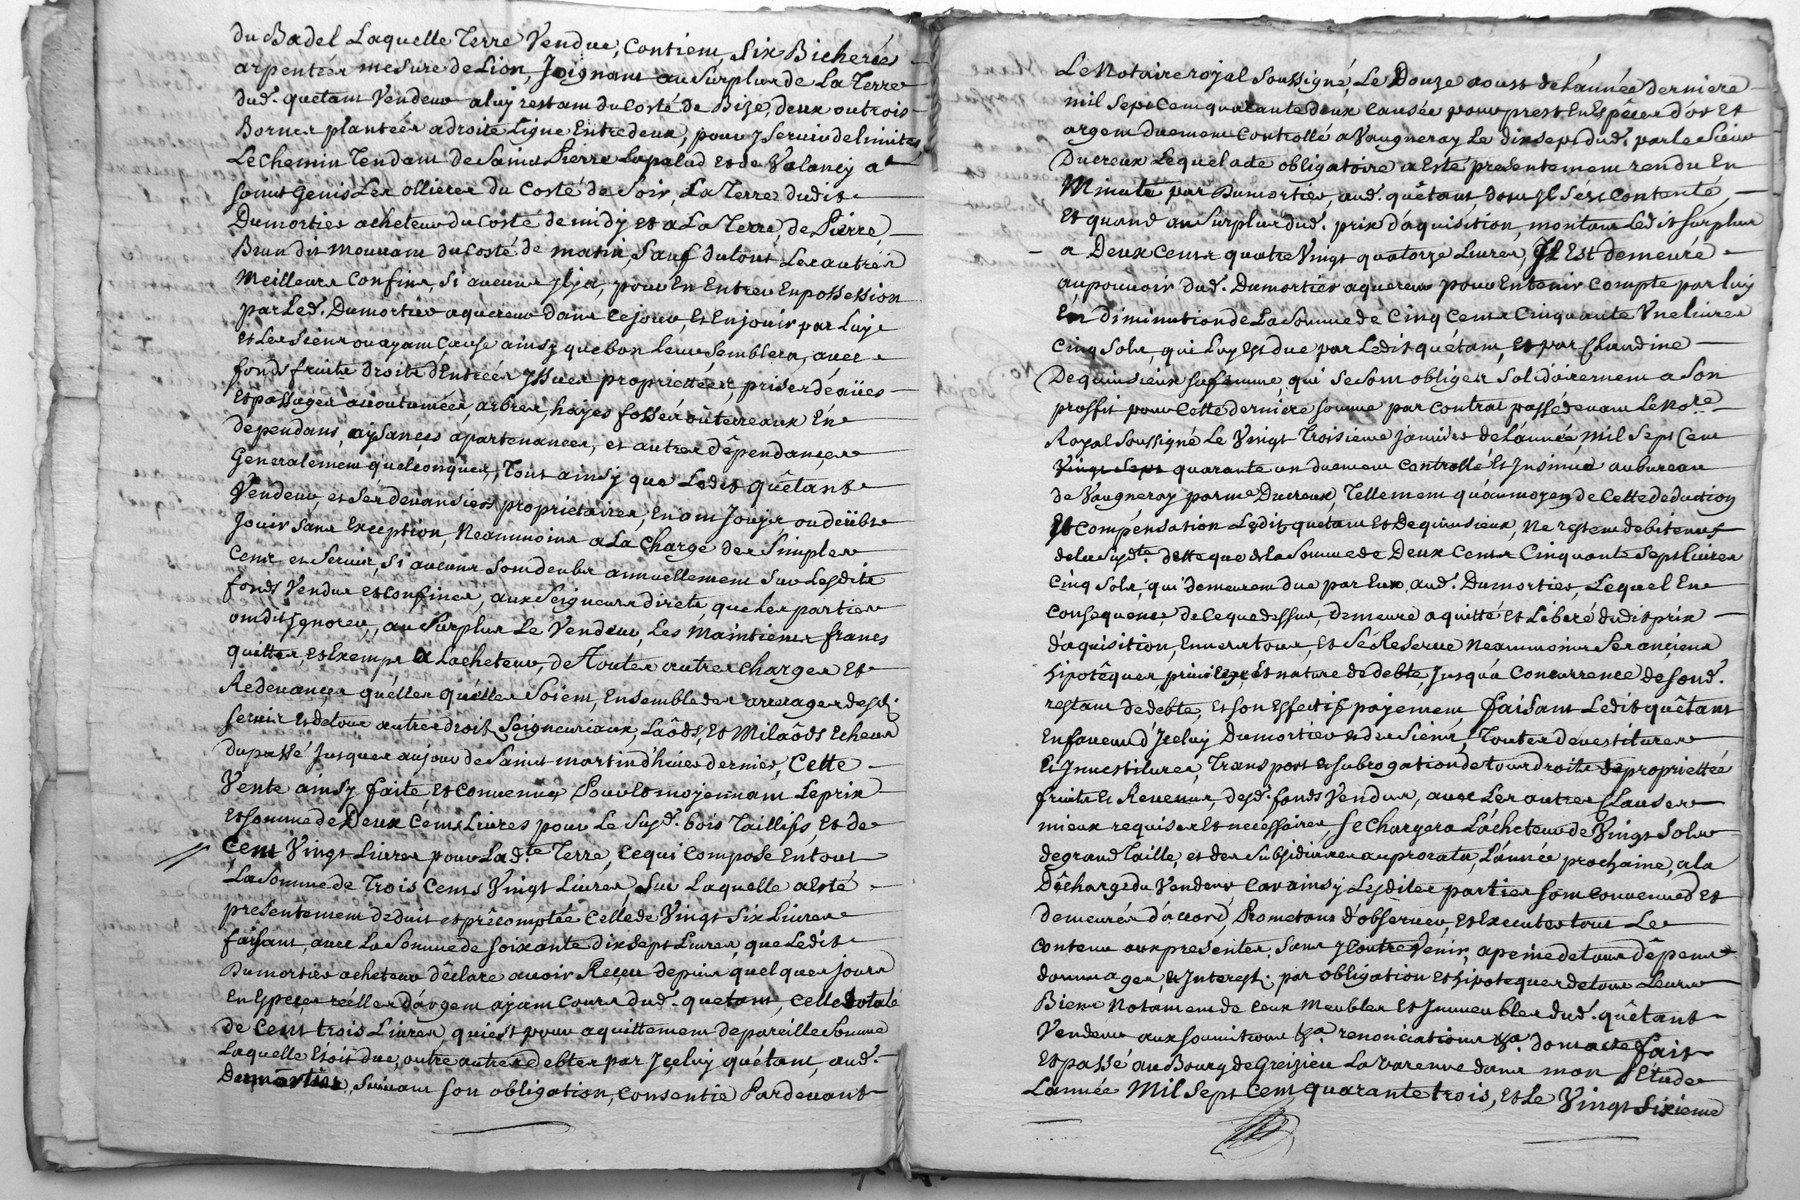 du Badel Laquelle Terre Vendue, Contient, Six Bicherées
arpentées mesure de Lion, Joignant au Surplus de La Terre
dud. quetant Vendeur a luy restant du Costé de Bize, deux ou trois
Bornes plantées a droite Ligne Entredeux, pour y Servir de limites
Le Chemin Tendant de Saint Pierre Lapalud et de Valancy a
Saint Genis Les ollieres du Costé de Soir, La Terre dudit
Dumortier acheteur du Costé de midy et a La Terre, de Pierre,
Brun dit Mournant du Costé de matin, Sauf du tout Les autres
Meilleurs Confins, Si aucuns y la, pour En Entrer En possession
par Led. Dumortier aquereur dans Ce jour, et En jouir par Luy
et Les Siens ou ayant Cause ainsy que bon leur Semblera, avec
fonds fruits droits d'Entrées yssues proprietées, prises d'eaües
et passages acoutumées, arbres, hayes fossés, outereaux En
dependans, aysances apartenances, et autres dêpendances
Generalement quelconques, Tout ainsy que Ledit Quêtant
Vendeur, et Ses devanciers propriétaires, En ont Jouÿs ou deübt
Jouir Sans Exception, Neanmoins a La Charge des Simples
Cens et Servis, Si aucuns Sont deubs annuellement Sur Lesdits
fonds Vendus et Confinés, aux Seigneurs directs, que Les parties
ont dit Ignorer, au Surplus Le Vendeur, Les Maintiens francs
quittes, et Exempts a Lacheteur, de Toutes autres charges Et
Redevances quélles quélles Soient, Ensemble des arrerages desd.
Servis et de tous autres droits Seigneuriaux, Laôds, Et Milaôds Echeus
du passé Jusques aujour de Saint martin d'hiver dernier, Cette
Vente ainsy faite, et Convenue, Pour Et moyennant Le prix
Et Somme de Deux Cents Livres pour Le Susd. bois Taillifs, Et de
Cent Vingt Livres pour Lad.te Terre, Ce qui Compose En tout
La Somme de Trois Cents Vingt Livres, Sur Laquelle a Esté
presentement deduit et prêcomptée Celle de Vingt Six Livres
faisant, avec La Somme de Soixante dix sept Livres, que Ledit
Dumortier acheteur dêclare avoir Reçeu depuis quelques jours
En Espèces réelles d'argent ayant Cours dud. quetant, Celle totale
de Cent trois Livres, qui est pour aquittement de pareille Somme
Laquelle Etoit due, outre autres debtes par Jcelluy quétant, aud.
Dumortier, Suivant Son obligation, Consentie Pardevant
Le Notaire royal Soussigné, Le Douze aoust de L'année derniere
mil Sept Cent quarante deux Causée pour prest En Espêces d'or Et
argent duement Controllé a Vaugneray Le dix sept dud. par le Sieur
Ducreux Lequel acte obligatoire a Esté presentement rendu En
Minute par Dumortier, aud. quêtant, dont Jl S'est Contenté,
Et quand au Surplus dud. prix d'aquisition, montant Ledit Surplus
a Deux Cents quatre Vingt quatorze Livres, Jl Est demeuré
au pouvoir dud. Dumortier aquereur pour En tenir Compte par luy
En diminution de La Somme de Cinq Cents Cinquante Vne livres
Cinq Sols, qui Luy est due par Ledit quétant, Et par Claudine
Dequinsieux Sa femme, qui Se Sont obligés Solidairement a Son
proffit pour Cette derniere Somme par Contrat passé devant Le No.re
Royal Soussigné Le Vingt Troisieme janvier de L'année Mil Sept Cent
Vingt Sept quarante un duement Controllé Et Jnsinué au bureau
de Vaugneray par me Ducreux, Tellement qu'au moyen de Cette deduction
Et Compensation Ledit quetant Et Dequinsieux, Ne restent debiteurs
de la Susd.te dette que de la Somme de Deux Cents Cinquante Sept livres
Cinq Sols, qui demeurent due par Eux, aud. Dumortier, Lequel En
Consequence de Ce que dessus, demeure aquitté et Liberé dudit prix
d'aquisition, Envers tous, Et Sés Reserve Neanmoins Ses anciens
hipotêques, privileges et nature de debte, jusqu'a Concurrence de Sond.
restant de debte, Et Son Effectif payement, faisant Ledit quêtant
En faveur d'Jceluy Dumortier & des Siens, Toutes dévestitures
Et Jnvestitures, Transport & Subrogation de tous droits de propriettée
fruits et Revenus, desd. fonds Vendus, avec Les autres Clauses
mieux requises Et necessaires, Se Chargera L'acheteur de Vingt Sols
de grand Taille, et des Subsidiaires au prorata, L'année prochaine, a la
Dêcharge du Vendeur Car ainsy Lesdites parties Sont Convenues Et
demeurés d'accord, Prometans d'observer, et Executer tout Le
Contenu aux presentes, Sans y Contrevenir, a peine de tous dêpens
dommages, & Interest. par obligation Et hipoteques de tous Leurs
Biens Notament de Ceux Meubles Et Jmmeubles dud. quêtant
Vendeur aux Soumissions &a. renonciations &a. dont acte fait
Et passé au Bourg de Greizieu La Varenne dans mon Etude
L'année Mil Sept Cent quarante trois, Et Le Vingt Sixieme